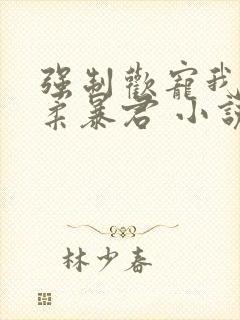 強制歡寵我
柔暴君 小說
林少春